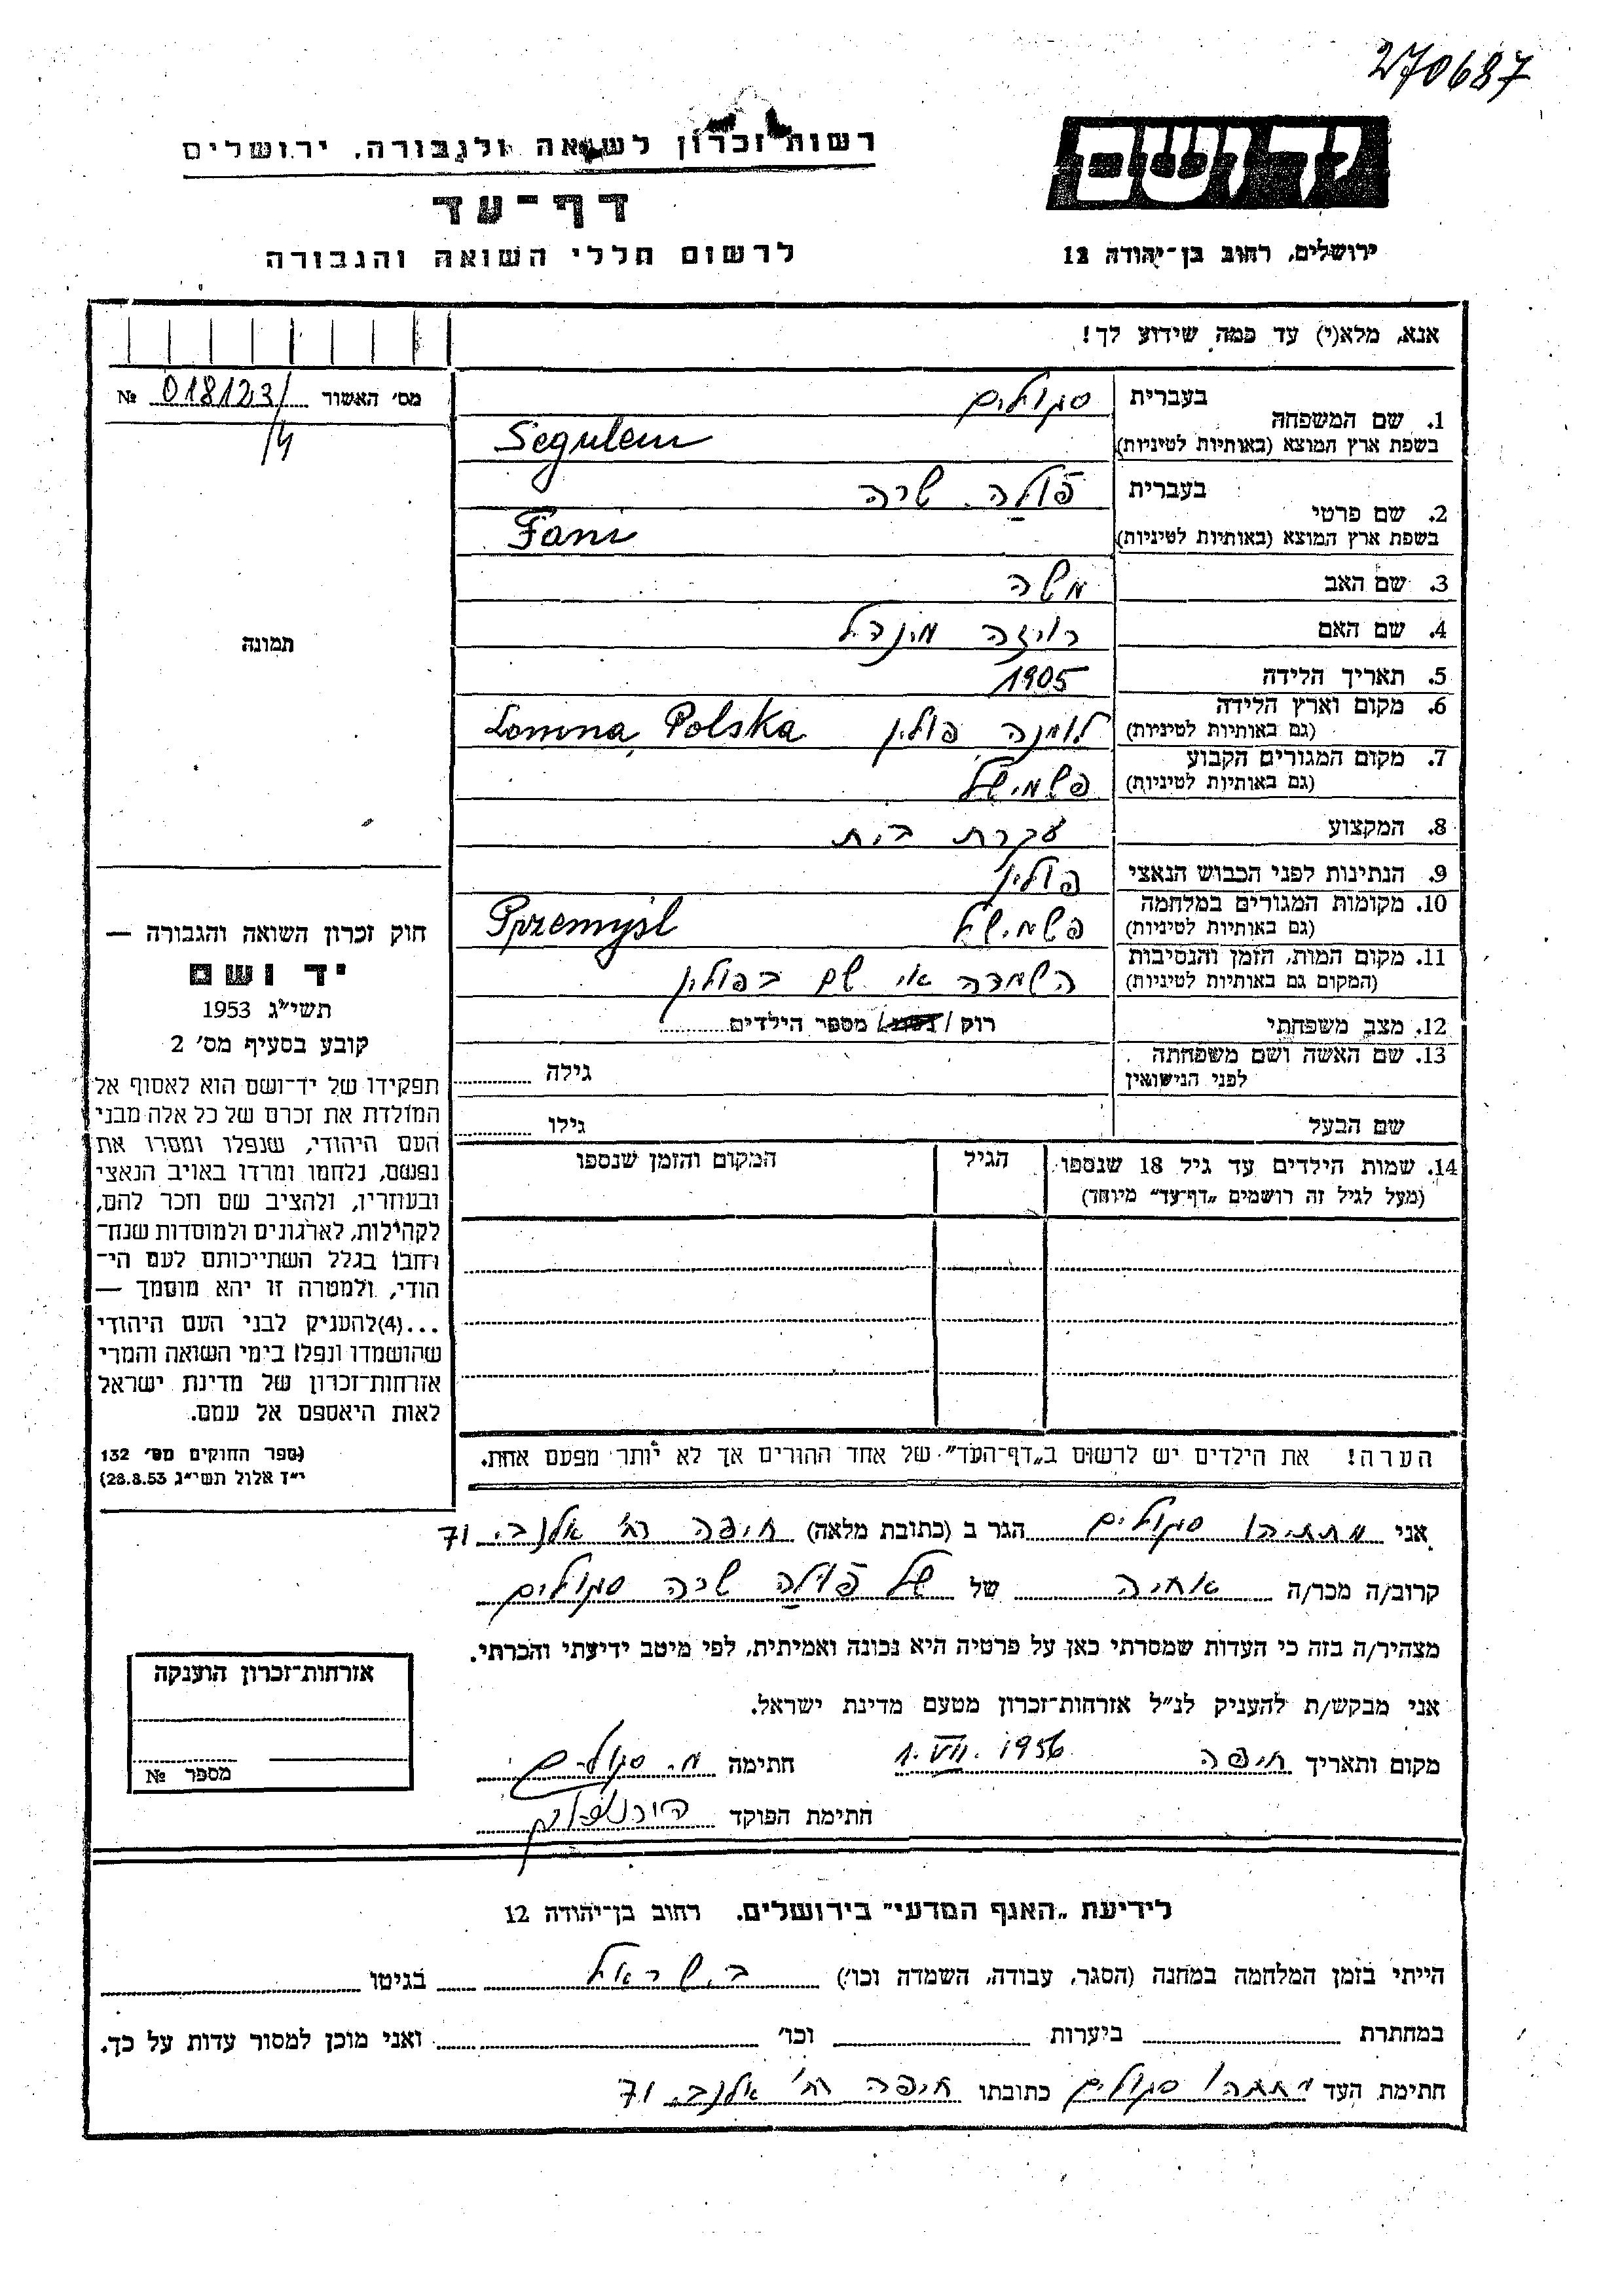 270687
יד ושם
רשות זכרון לשואה ולגבורה, ירושלים
דף-עד
ירושלים, רחוב בן-יהודה 12
לרשום חללי השואה והגבורה
אנא, מלא(י) עד כמה שידוע לך!
מס' האשור 018123/ №
/4
תמונה
1. שם המשפחה
בעברית סגולים
בשפת ארץ המוצא (באותיות לטיניות) Segulem
2. שם פרטי
בעברית פולה שרה
בשפת ארץ המוצא (באותיות לטיניות) Fani
3. שם האב משה
4. שם האם רויזה מינדל
5. תאריך הלידה 1905
6. מקום וארץ הלידה לומנה פולין Lomna, Polska
(גם באותיות לטיניות)
7. מקום המגורים הקבוע פשמישל
(גם באותיות לטיניות)
8. המקצוע עקרת בית
9. הנתינות לפני הכבוש הנאצי פולין
10. מקומות המגורים במלחמה פשמישל Przemyśl
(גם באותיות לטיניות)
11. מקום המות, הזמן והנסיבות השמדה אי שם בפולין
(המקום גם באותיות לטיניות)
12. מצב משפחתי רוק / / מספר הילדים
13. שם האשה ושם משפחתה גילה
לפני הנישואין
שם הבעל גילו
14. שמות הילדים עד גיל 18 שנספו הגיל המקום והזמן שנספו
(מעל לגיל זה רושמים „דף-עד" מיוחד)
הערה! את הילדים יש לרשום ב„דף-העד" של אחד ההורים אך לא יותר מפעם אחת.
חוק זכרון השואה והגבורה —
יד ושם
תשי"ג 1953
קובע בסעיף מס' 2
תפקידו של יד-ושם הוא לאסוף אל
המולדת את זכרם של כל אלה מבני
העם היהודי, שנפלו ומסרו את
נפשם, נלחמו ומרדו באויב הנאצי
ובעוזריו, ולהציב שם וזכר להם,
לקהילות, לארגונים ולמוסדות שנח-
רחבו בגלל השתייכותם לעם הי-
הודי, ולמטרה זו יהא מוסמך —
...(4)להעניק לבני העם היהודי
שהושמדו ונפלו בימי השואה והמרי
אזרחות-זכרון של מדינת ישראל
לאות היאספם אל עמם.
(ספר החוקים מס' 132
י"ז אלול תשי"ג 28.8.53)
אני מתתיהו סגולים הגר ב (כתובת מלאה) חיפה רח' אלנבי 71
קרוב/ה מכר/ה אחיה של של פולה שרה סגולים
מצהיר/ה בזה כי העדות שמסרתי כאן על פרטיה היא נכונה ואמיתית, לפי מיטב ידיעתי והכרתי.
אני מבקש/ת להעניק לנ"ל אזרחות-זכרון מטעם מדינת ישראל.
מקום ותאריך חיפה 1.VII.1956 חתימה מ. סגולים
חתימת הפוקד
אזרחות-זכרון הוענקה
מספר №
לידיעת „האגף המדעי" בירושלים. רחוב בן-יהודה 12
הייתי בזמן המלחמה במחנה (הסגר, עבודה, השמדה וכו') בישראל בגיטו
במחתרת ביערות וכו' ואני מוכן למסור עדות על כך.
חתימת העד מתתיהו סגולים כתובתו חיפה רח' אלנבי 71